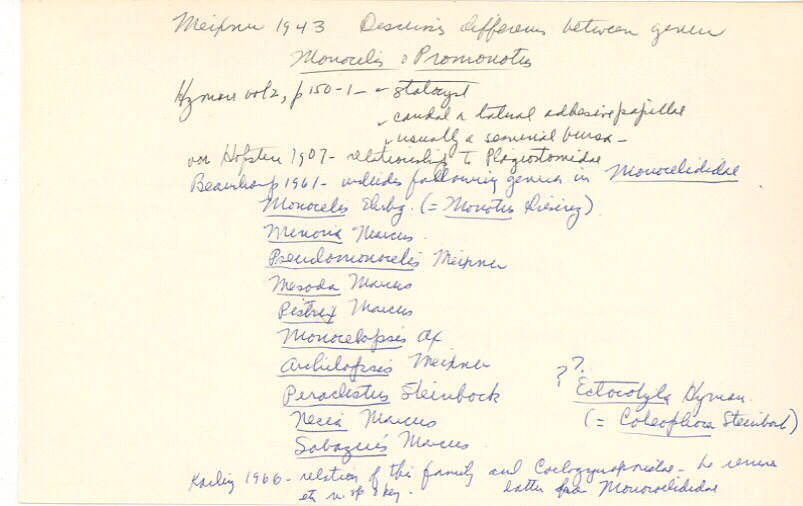 Meixner 1943 Discuss differences between genera
Monocelis & Promonotus
Hyman vol 2, p 150-1 - - statocyst
✓ caudal & lateral adhesive papillae
✓ usually a seminal bursa -
von Hofsten 1907 - relationship to Plagiostomidae
Beauchamp 1961 - includes following genera in Monocelididae
Monocelis Ehrbg. (= Monotus Diesing)
Minona Marcus.
Pseudomonocelis Meixner
Mesoda Marcus
Pistrix Marcus
Monocelopsis Ax
Archilopsis Meixner
Peraclistus Steinbock
Necia Marcus
Sabagius Marcus
?? Ectocotyla Hyman.
(= Coleophora Steinbock)
Karling 1966 - relation of this family and Coelogynoporidae -
etc n. sp & key. latter Monocelididae